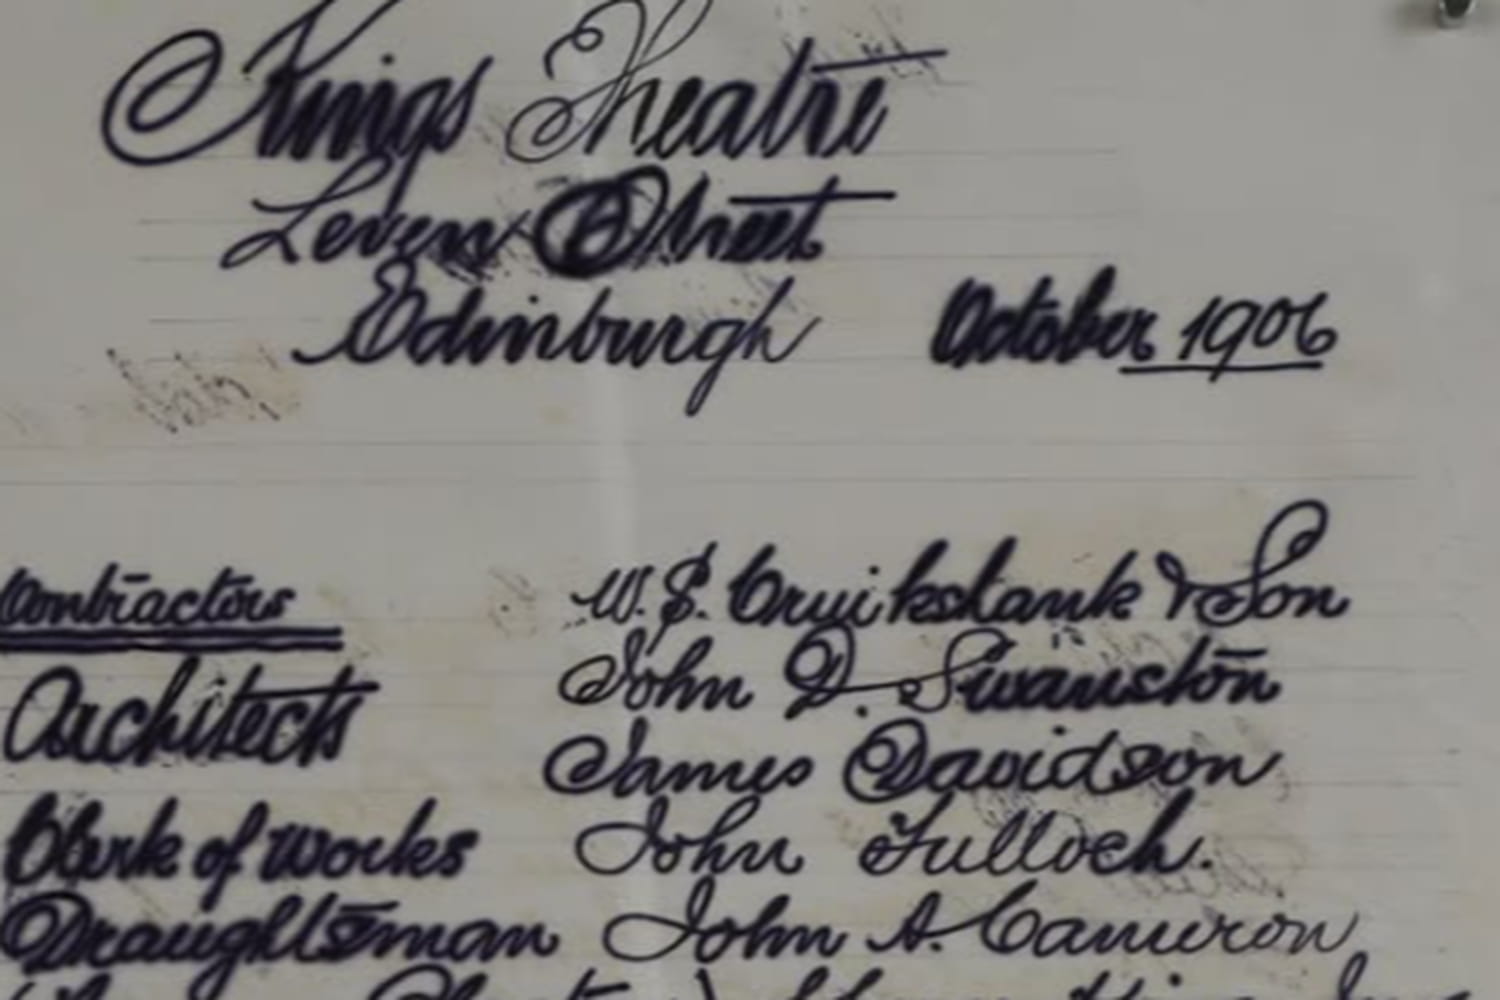 Kings Theatre
Leven Street
Edinburgh October 1906
Contractors W. S. Cruikshank & Son
Architects John D. Swanston
James Davidson
Clerk of Works John Tulloch.
Draughtsman John A. Cameron